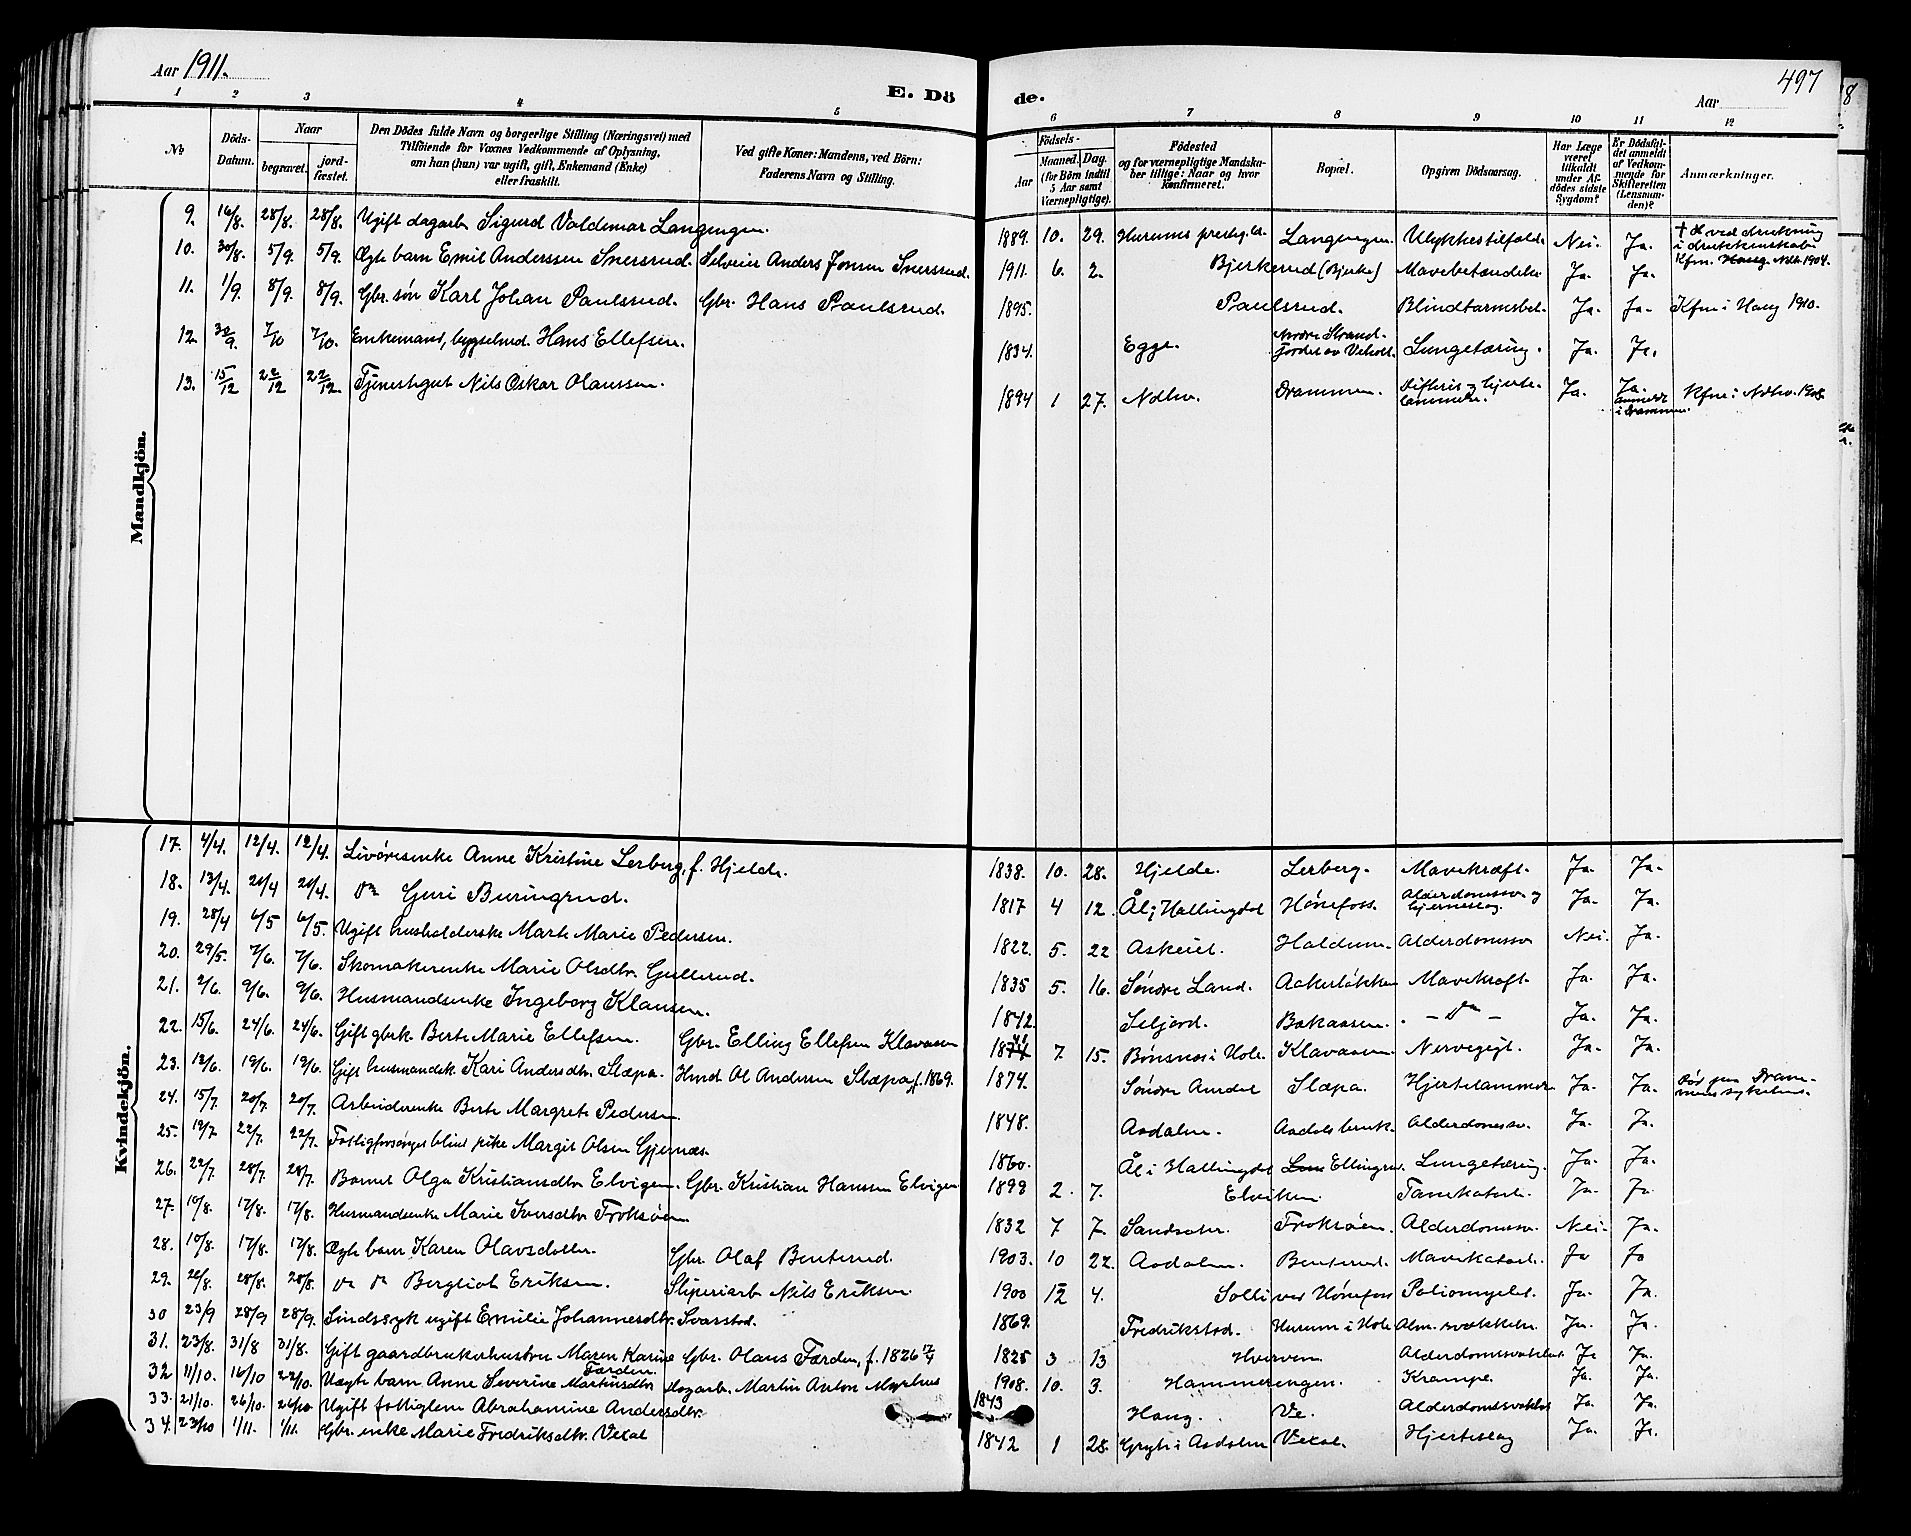 Aar 1911.
E. Döde.
Aar
497
1 2 3 4 5 6 7 8 9 10 11 12
№
Döds-Datum.
Naar
begravet.
jord-fæstet.
Den Dödes fulde Navn og borgerlige Stilling (Næringsvei) med Tilföiende for Voxnes Vedkommende af Oplysning, om han (hun) var ugift, gift, Enkemand (Enke) eller fraskilt.
Ved gifte Koner: Mandens, ved Börn: Faderens Navn og Stilling.
Födsels-
Aar
Maaned. Dag.
(for Börn indtil 5 Aar samt Værnepligtige).
Födested og for værnepligtige Mandskaber tillige: Naar og hvor konfirmeret.
Bopæl.
Opgiven Dödsaarsag.
Har Læge været tilkaldt under Afdödes sidste Sygdom?
Er Dödsfaldet anmeldt af Vedkommende for Skifteretten (Lensmanden)?
Anmærkninger.
Mandkjön.
9. 16/8. 28/8. 28/8. Ugift dagarb Sigurd Valdemar Langengen. 1889. 10. 29. Hurums prestgjd. Langengen. Ulykkestilfælde Nei. Ja. ved drukning i drukkenskab. Kfm. Haug Ndh. 1904.
10. 30/8. 5/9. 5/9. Ægte barn Emil Anderssen Snersrud. Selveier Anders Jonsen Snersrud. 1911. 6. 2. Bjerkerud (Bjerke) Mavebetændelse Ja. Ja.
11. 1/9. 8/9. 8/9. Gbr. søn Karl Johan Paulsrud. Gbr. Hans Paulsrud. 1895. Paulsrud. Blindtarmsbet. Ja. Ja. Kfm i Haug 1910.
12. 30/9. 7/10 7/10. Enkemand, bygselmd. Hans Ellefsen. 1834. Egge. Lungetæring. Ja. Ja.
13. 15/12 22/12 22/12. Tjenestegut Nils Oskar Olaussen. 1894 1 27. Ndhv. Drammen. Difteri og hjertelammelse. Ja. Ja. anmeldt i Drammen. Kfm i Ndhv. 1908.
Kvindekjön.
17. 4/4. 12/4. 12/4. Livøresenke Anne Kristine Lerberg, f. Hjelde. 1838. 10. 28. Hjelde. Lerberg. Mavekræft. Ja. Ja.
18. 13/4. 20/4 20/4. do Guri Buringrud. 1817 4 12. Ål i Hallingdal Hønefoss. Alderdomssv. og hjerneslag. Ja. Ja.
19. 28/4 6/5 6/5. Ugift husholderske Marte Marie Pedersen. 1822. 5. 22 Askeiet. Haldum. Alderdomssv Nei. Ja.
20. 29/5. 7/6. 7/6. Skomakerenke Marie Olsdtr. Gullerud. 1835 5. 16. Søndre Land. Aakerløkken Mavekræft. Ja. Ja.
21. 2/6. 9/6. 9/6. Husmandsenke Ingeborg Klausen. 1842. Seljord. Bakaasen. - do - Ja. Ja.
22. 15/6. 24/6. 24/6. Gift gbrk. Berte Marie Ellefsen. Gbr. Elling Ellefsen Klavaasen 7. 15. Bønsnes i Hole. Klavaasen. Nervegigt. Ja. Ja.
23. 12/6. 19/6. 19/6. Gift husmandsk. Kari Andersdtr. Slæpa. Hmd. Ol Andersen Slæpa, f. 1869. 1874. Søndre Aurdal Slæpa. Hjertelammelse Ja. Ja. Død paa Drammens sykehus.
24. 15/7. 20/7. 20/7. Arbeiderenke Berte Margrete Pedersen. 1848. Aadalen. Aadalsbruk. Alderdomssv. Ja. Ja.
25. 19/7 22/7. 22/7. Fattigforsørget blind pike Margit Olsen Gjernæs. 1860. Ål i Hallingdal Ellingrud. Lungetæring. Ja. Ja.
26. 22/7. 28/7. 28/7. Barnet Olga Kristiansdtr Elvigen. Gbr. Kristian Hanssen Elvigen 1899 2. 7. Elviken. Tarmkatarh. Ja. Ja
27. 10/8. 17/8. 17/8. Husmandsenke Marie Iversdtr Froksøen 1832 7 7. Sandsæter. Froksøen. Alderdomssv. Nei. Ja.
28. 10/8. 17/8. 17/8. Ægte barn Karen Olavsdatter. Gbr. Olaf Benterud. 1903. 10 22. Aadalen. Benterud. Mavekatarh. Ja Ja
29. 22/8. 28/8. 28/8. do do Bergliot Eriksen. Sliperiarb Nils Eriksen. 1900 12 4. Solli ved Hønefoss Poliomyelit. Ja. Ja.
30 23/9 28/9 28/9. Sindssyk ugift Emilie Johannesdtr. Svarstad. 1869. Fredrikstad. Hurum i Hole Alm. svækkelse. Ja. Ja.
31. 23/8. 31/8 31/8. Gift gaardbrukerhustru Maren Karine Færden. Gbr. Olaus Færden, f. 1826 7/4 1825 3 13 Hverven. Alderdomssvækkelse Ja Ja.
32 11/10. 16/10 22/10. Uægte barn Anne Severine Martinsdtr Dagarb. Martin Anton Myrhus 1908. 10. 3. Hammerengen. Krampe. Ja. Ja.
33. 21/10. 26/10. 26/10 Ugift fattiglem Abrahamine Andersdtr. 1843 Haug. Ve. Alderdomssvækkelse Ja. Ja.
34. 23/10 1/11. 1/11. Gbr. enke Marie Fredriksdtr. Vexal 1842 1 28. Gryte i Aadalen Vexal. Hjerteslag Ja. Ja.